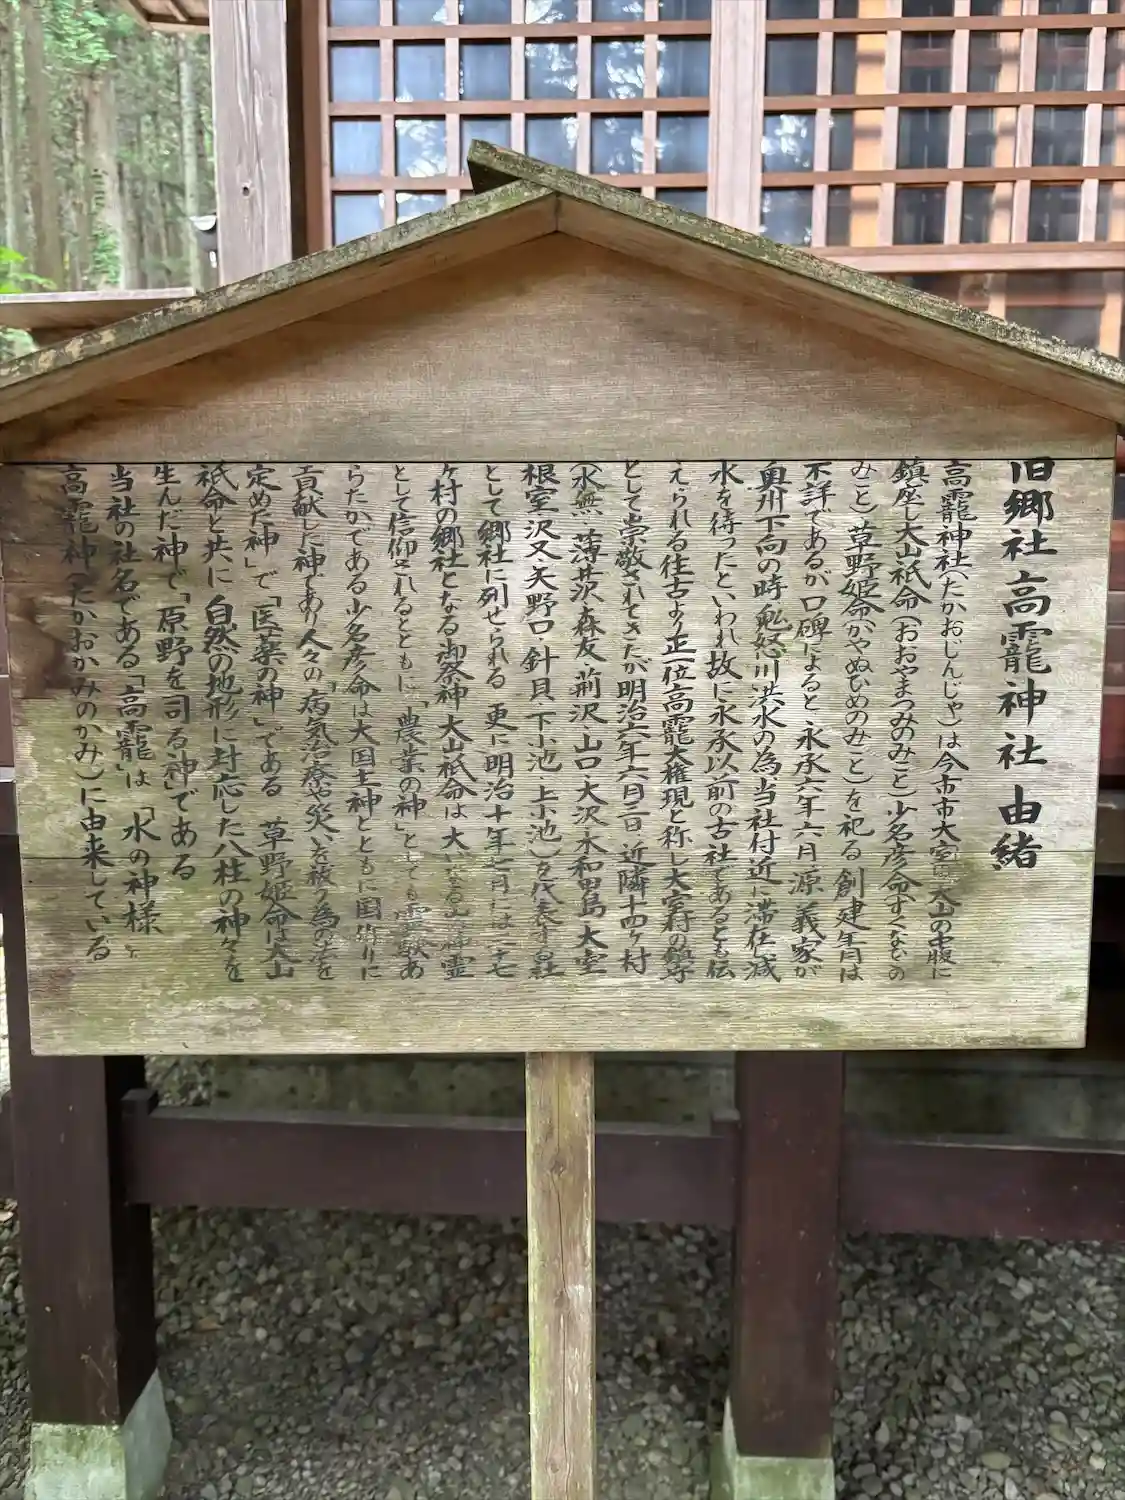 旧郷社高靇神社由緒
高靇神社(たかおじんじゃ)は今市市大室は大山の中腹に
鎮座し大山祇命(おおやまつみのみこと)少名彦命(すくなひこの
みこと)草野姫命(かやぬひめのみこと)を祀る 創建年月は
不詳であるが口碑によると 永承六年六月 源 義家が
奥州下向の時 鬼怒川洪水の為当社付近に滞在し減
水を待ったと、いわれ故に永承以前の古社であるとも伝
えられる往古より正一位高靇大権現と称し大室村の鎮守
として崇敬されてきたが明治六年六月三日 近隣十四ヶ村
(水無・薄井沢・森友・荊沢・山口・大沢・木和田島・大室
根室・沢又・矢野口・針貝・下小池・上小池)を代表する社
として郷社に列せられる 更に明治十年七月には二十七
ヶ村の郷社となる 御祭神 大山祇命は大いなる山の神霊
として信仰されるとともに「農業の神」としても霊験あ
らたかである少名彦命は大国主神とともに国作りに
貢献した神であり人々の「病気治療や災いを祓う為の法を
定めた神」で「医薬の神」である 草野姫命は大山
祇命と共に自然の地形に対応した八柱の神々を
生んだ神で「原野を司る神」である
当社の社名である「高靇」は「水の神様」
高靇神(たかおかみのかみ)に由来している